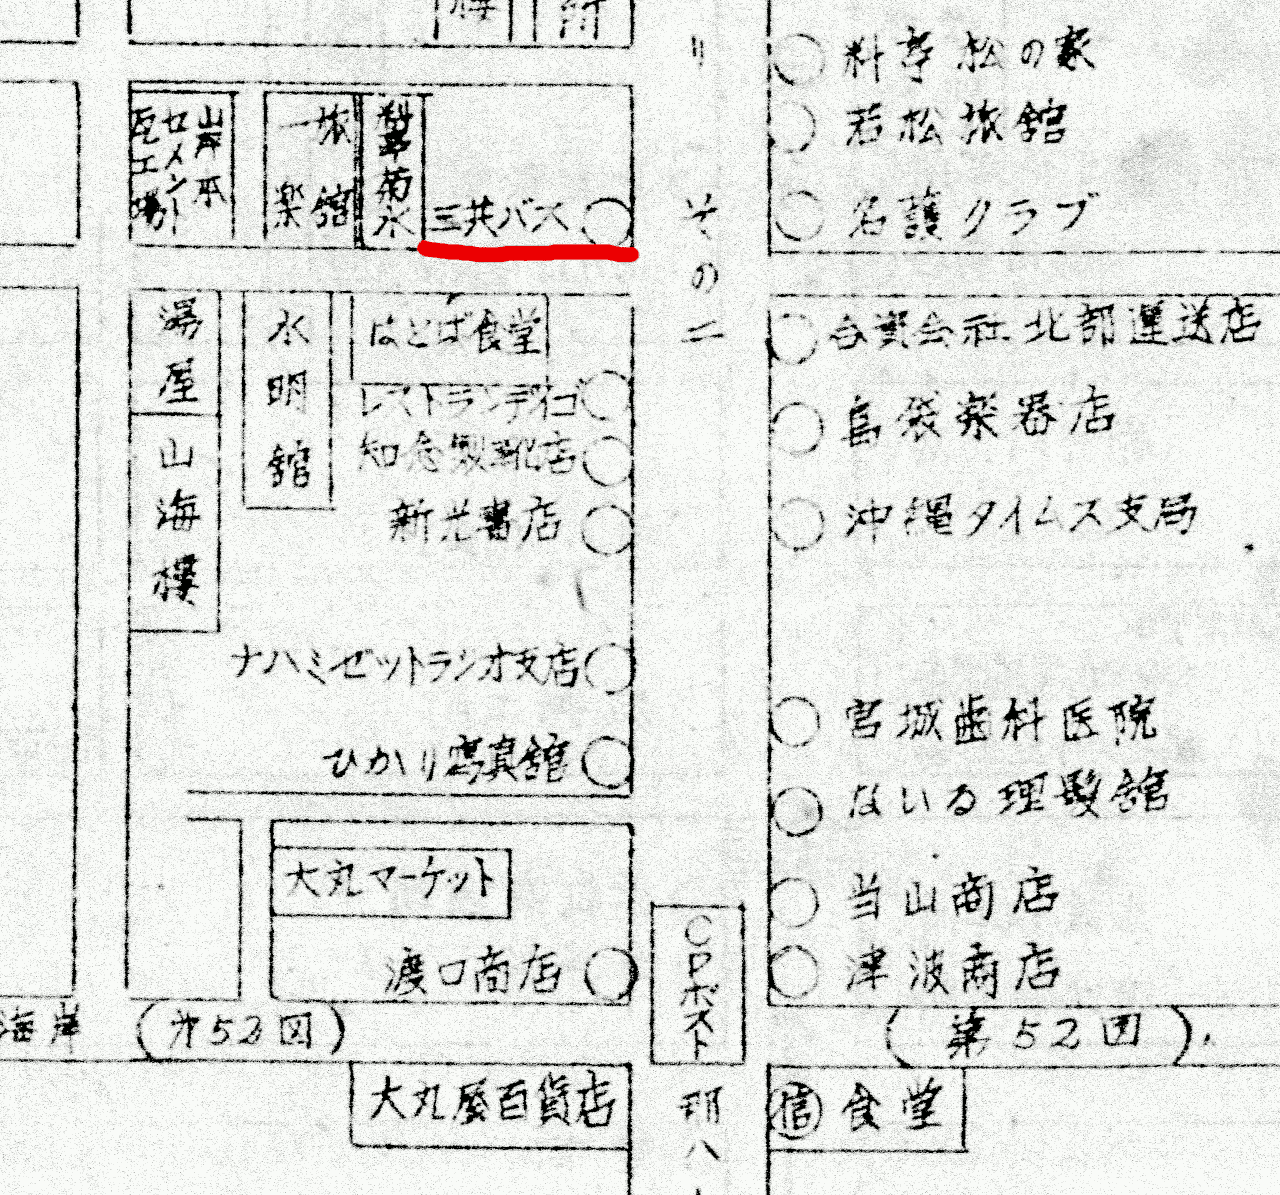 料亭松の家
若松旅館
名護クラブ
山岸本
セメント
瓦工場
旅館
一楽
料亭菊水
三共バス
その二
湯屋
水明館
はとば食堂
合資会社北部運送店
山海楼
知念製靴店
島袋楽器店
新光書店
沖縄タイムス支局
ナハミゼットラジオ支店
ひかり写真館
宮城歯科医院
ないる理髪館
大丸マーケット
当山商店
渡口商店
津波商店
CPポスト
海岸
(第52図)
(第52図)
大丸屋百貨店
那ハ
信食堂